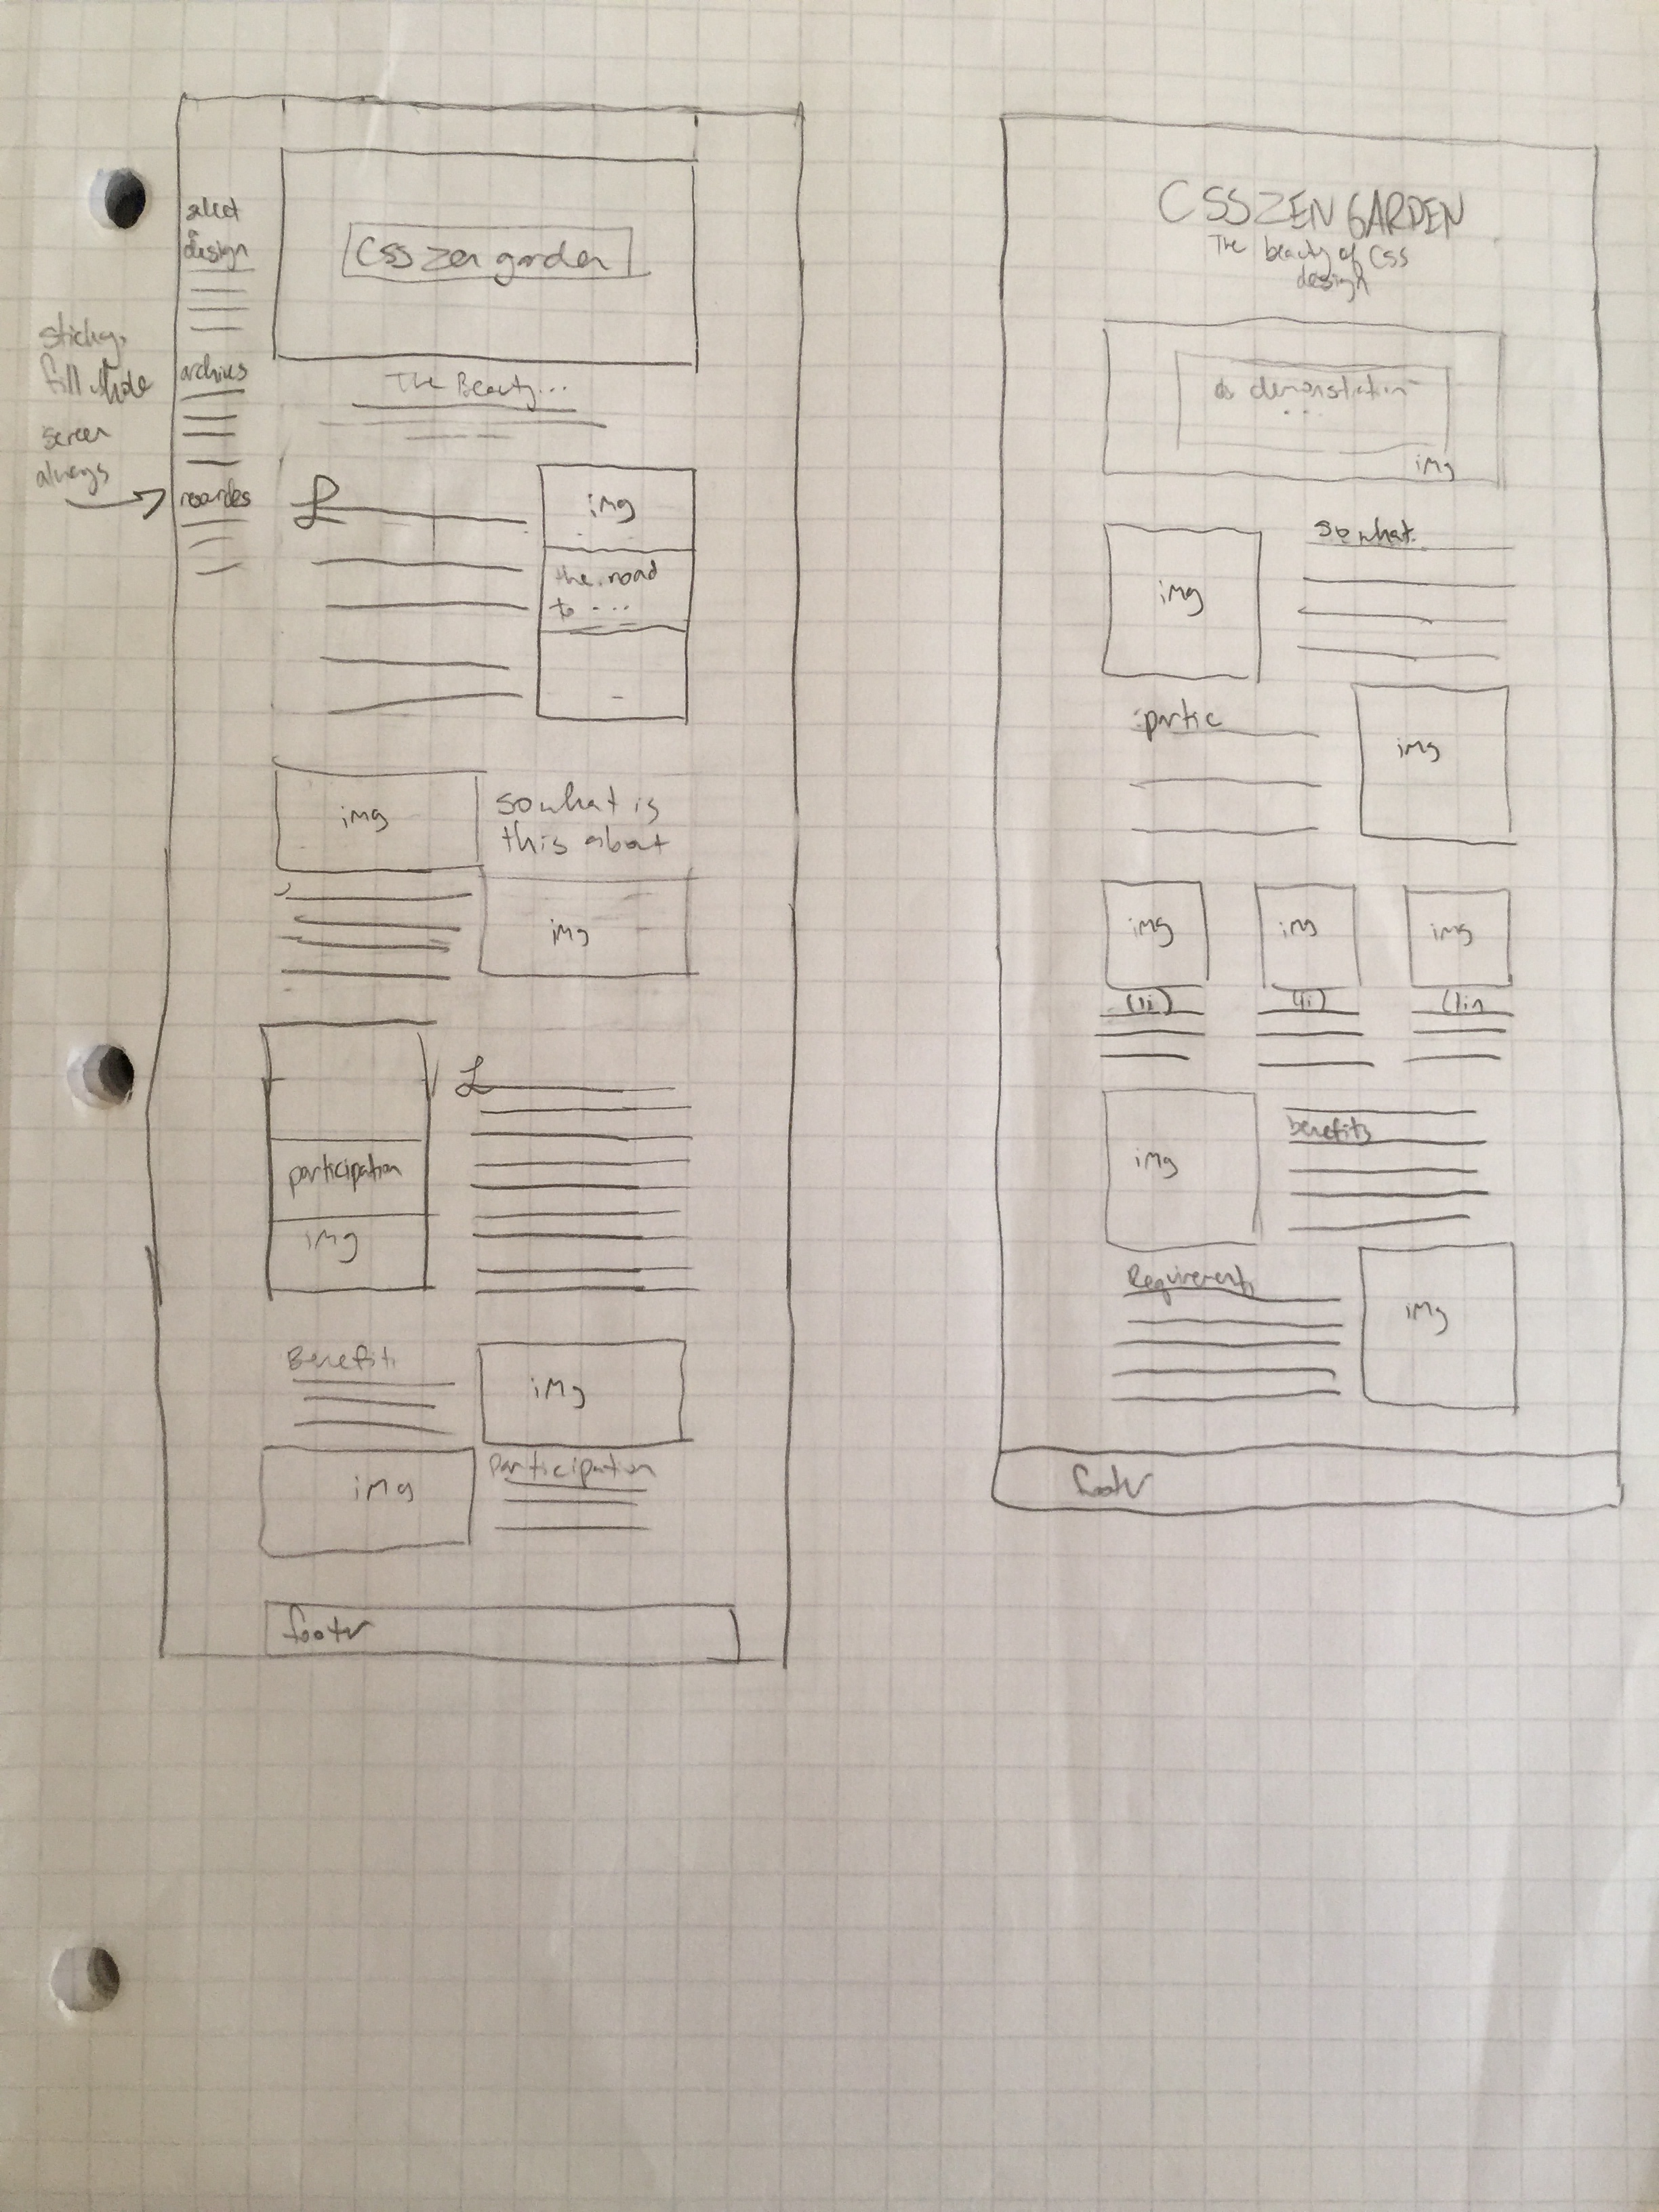 select
design
sticky,
fill whole
screen
always
archives
CSS Zen garden
The Beauty...
img
the road
to ...
img
so what is
this about
img
participation
img
Benefits
img
img
Participation
footer
CSS ZEN GARDEN
The beauty of CSS
design
a demonstration
...
img
img
so what
partic
img
img
img
img
(li)
(li)
(li)
img
benefits
Requirements
img
footer